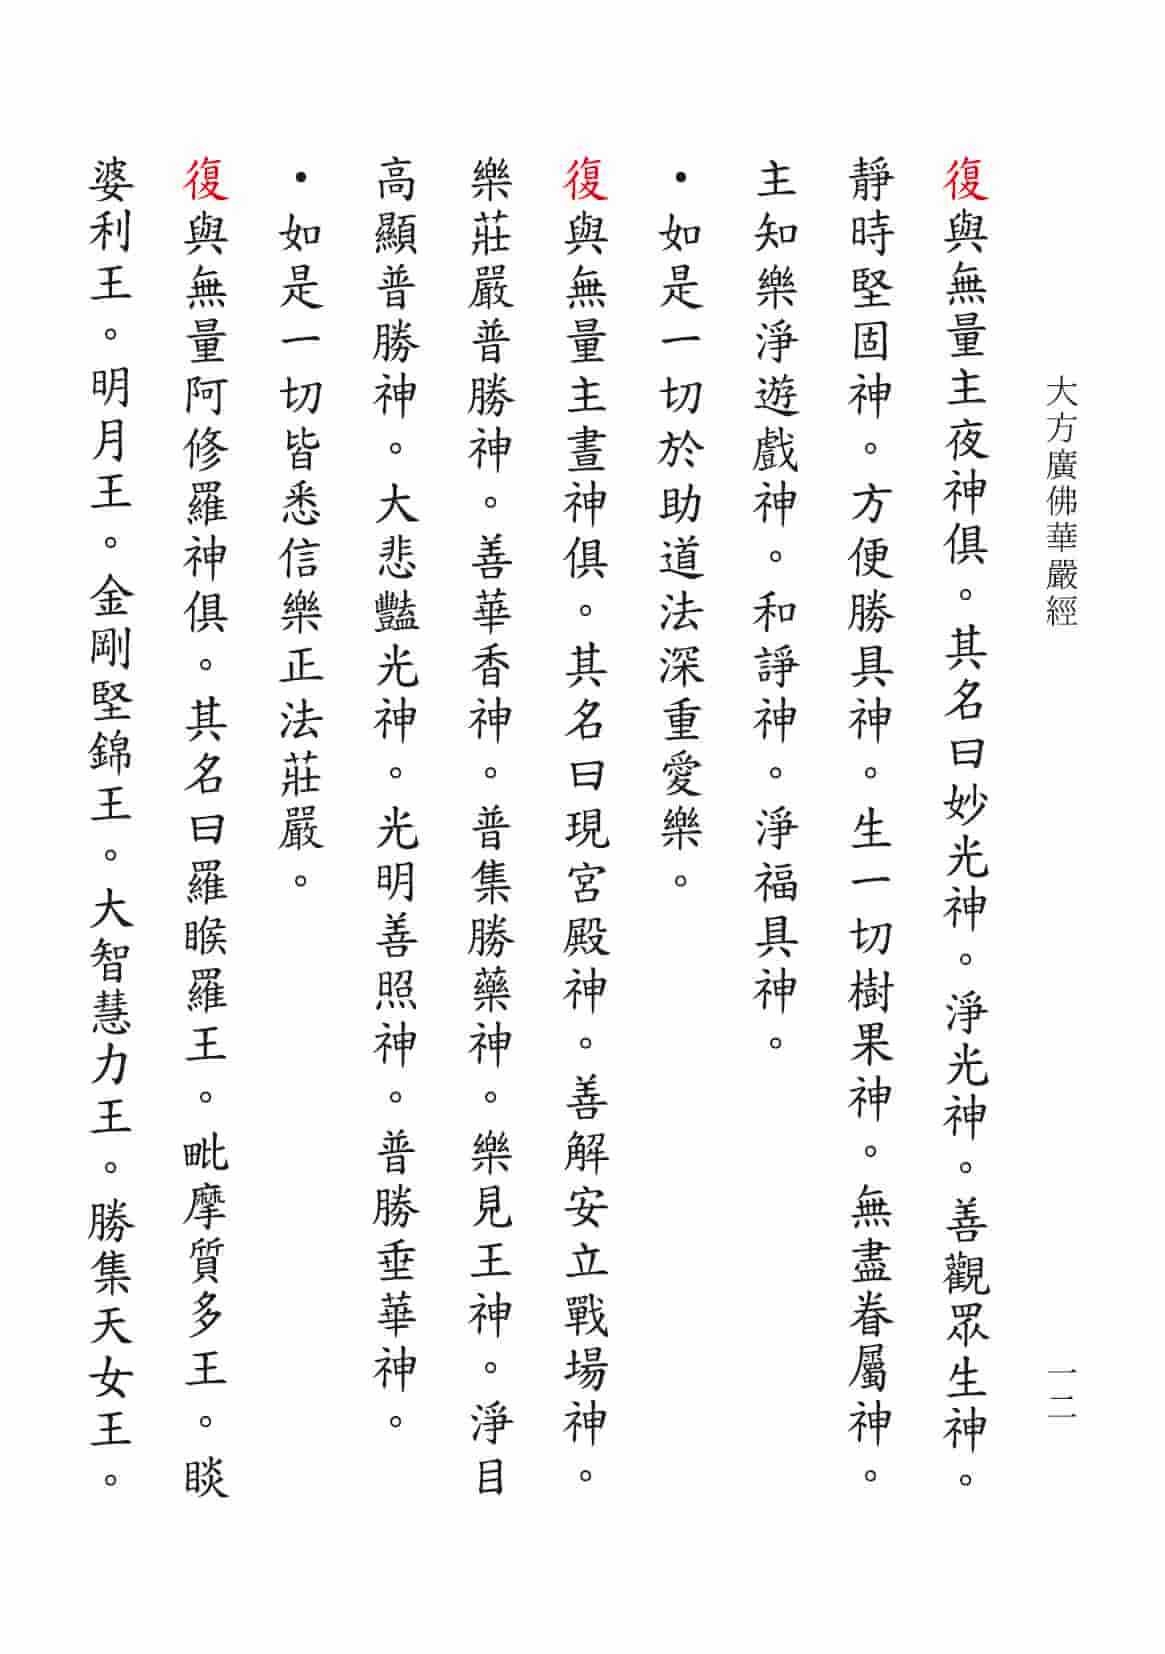 大方廣佛華嚴經
一二
復與無量主夜神俱。其名曰妙光神。淨光神。善觀眾生神。
靜時堅固神。方便勝具神。生一切樹果神。無盡眷屬神。
主知樂淨遊戲神。和諍神。淨福具神。
•如是一切於助道法深重愛樂。
復與無量主晝神俱。其名曰現宮殿神。善解安立戰場神。
樂莊嚴普勝神。善華香神。普集勝藥神。樂見王神。淨目
高顯普勝神。大悲豔光神。光明善照神。普勝垂華神。
•如是一切皆悉信樂正法莊嚴。
復與無量阿修羅神俱。其名曰羅睺羅王。毗摩質多王。睒
婆利王。明月王。金剛堅錦王。大智慧力王。勝集天女王。